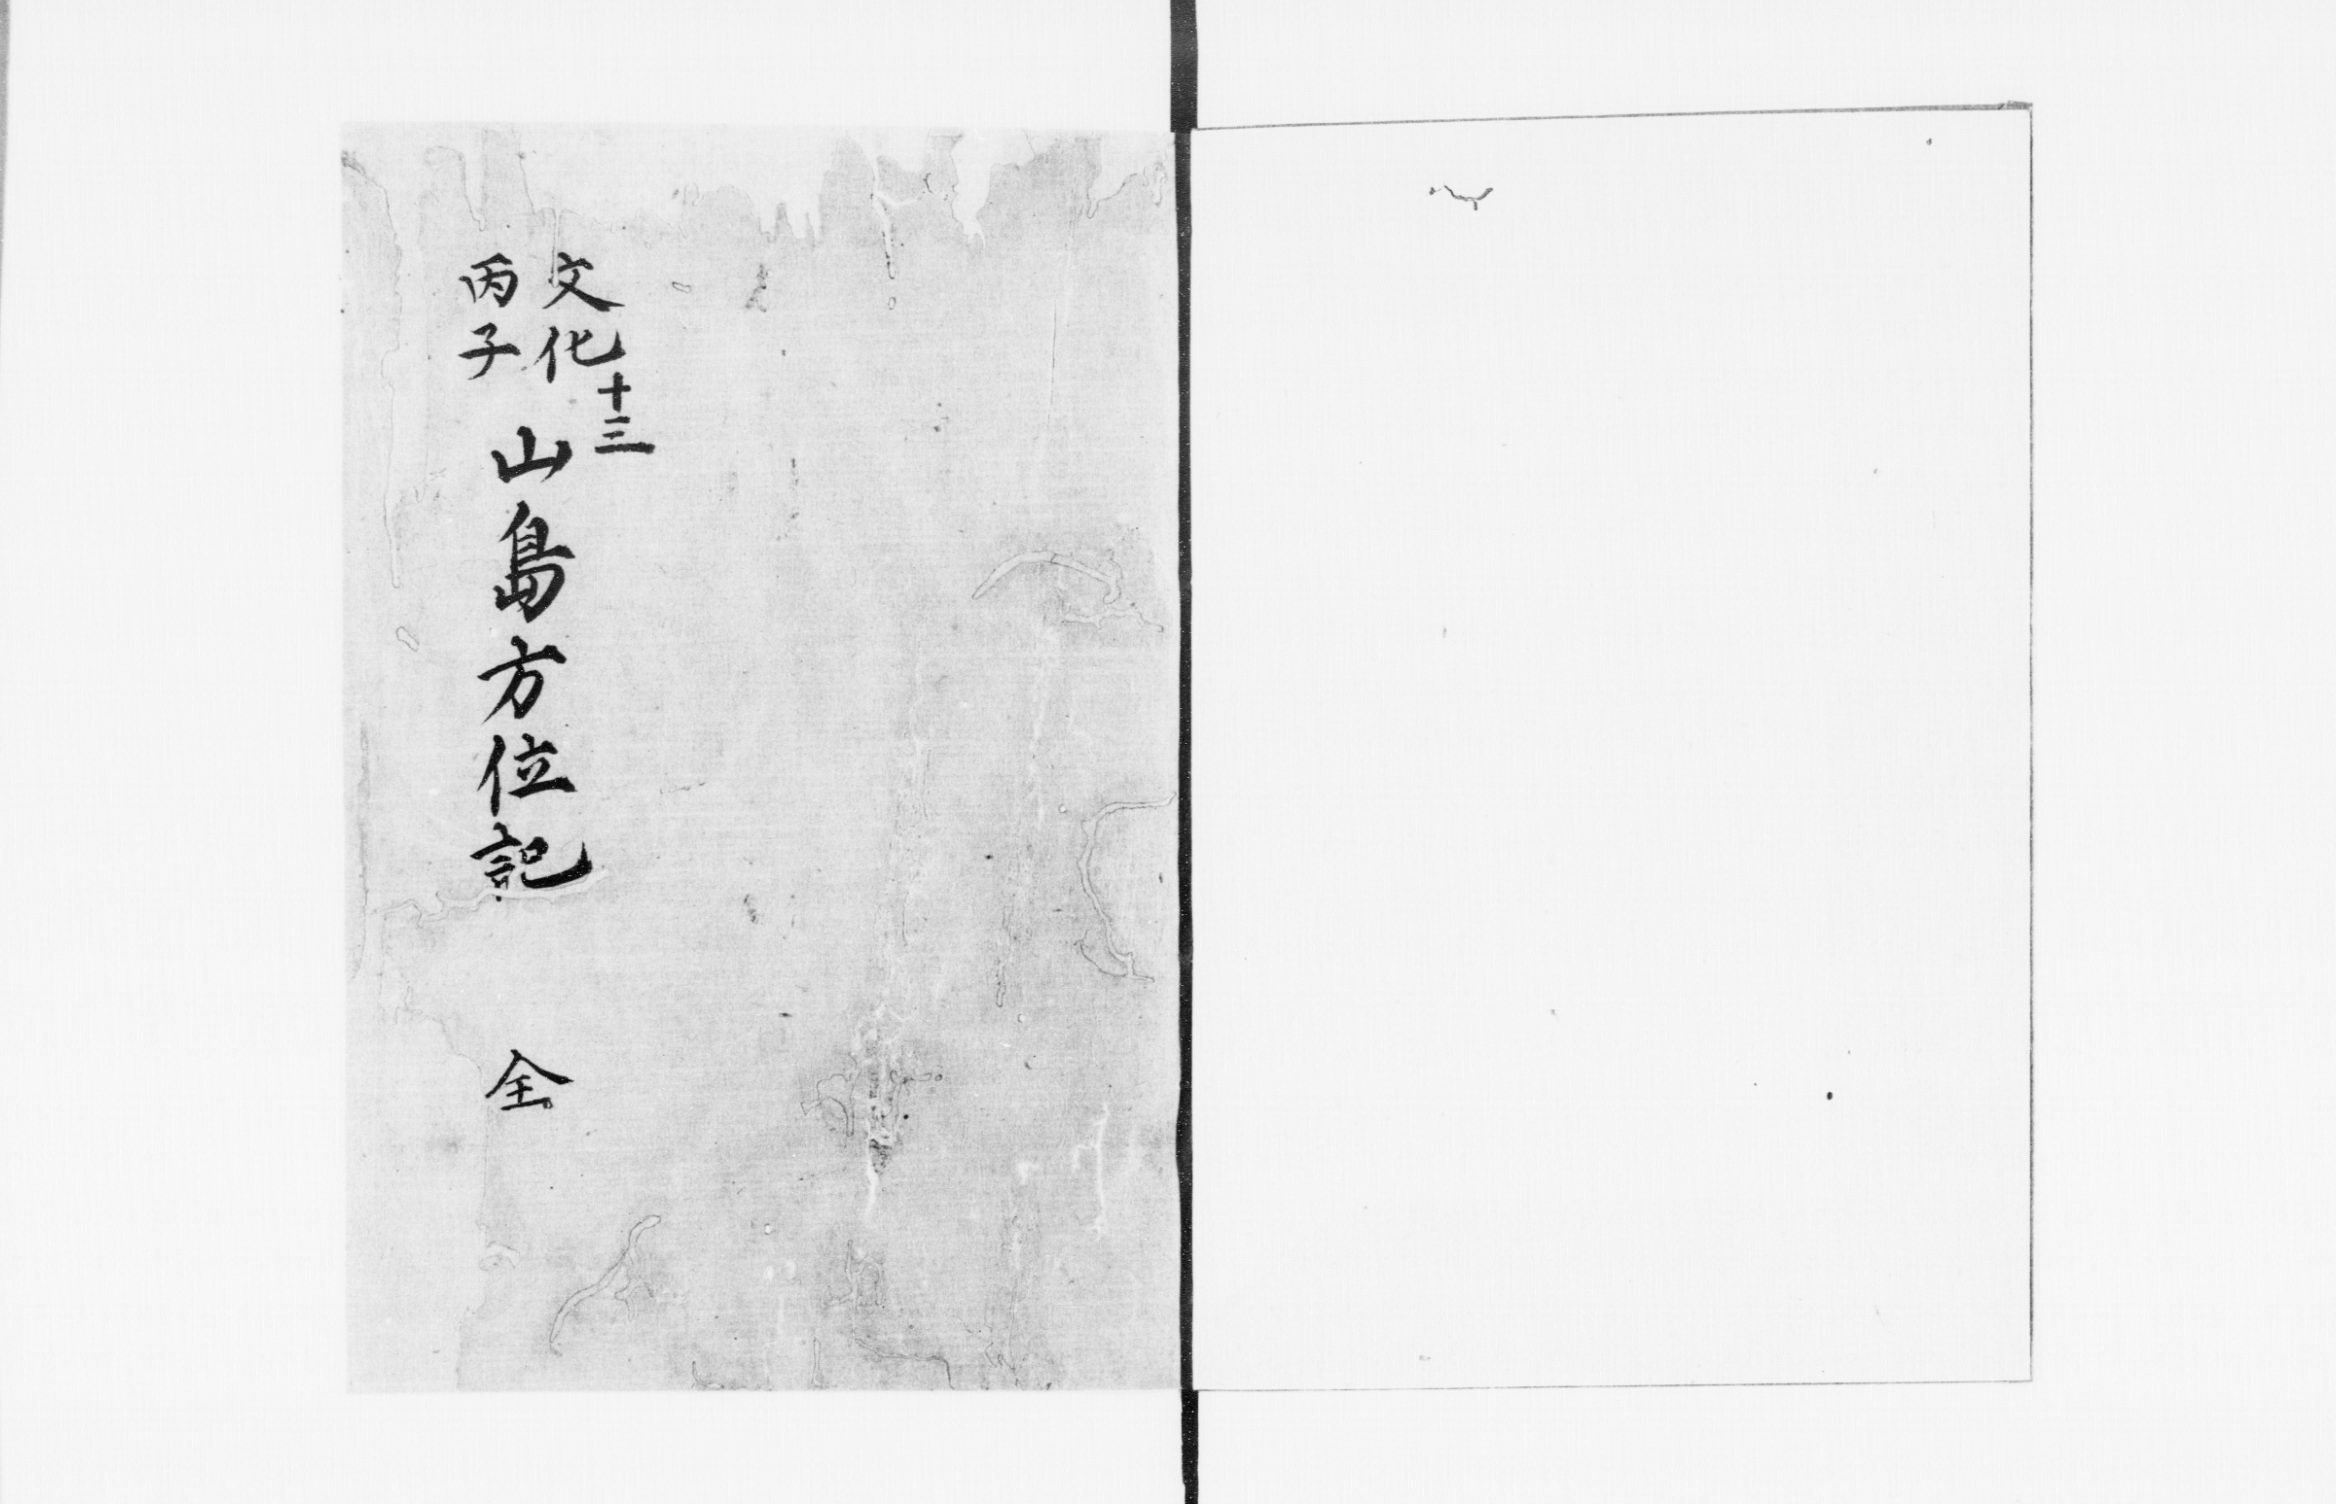 文化十三
丙子
山島方位記 全